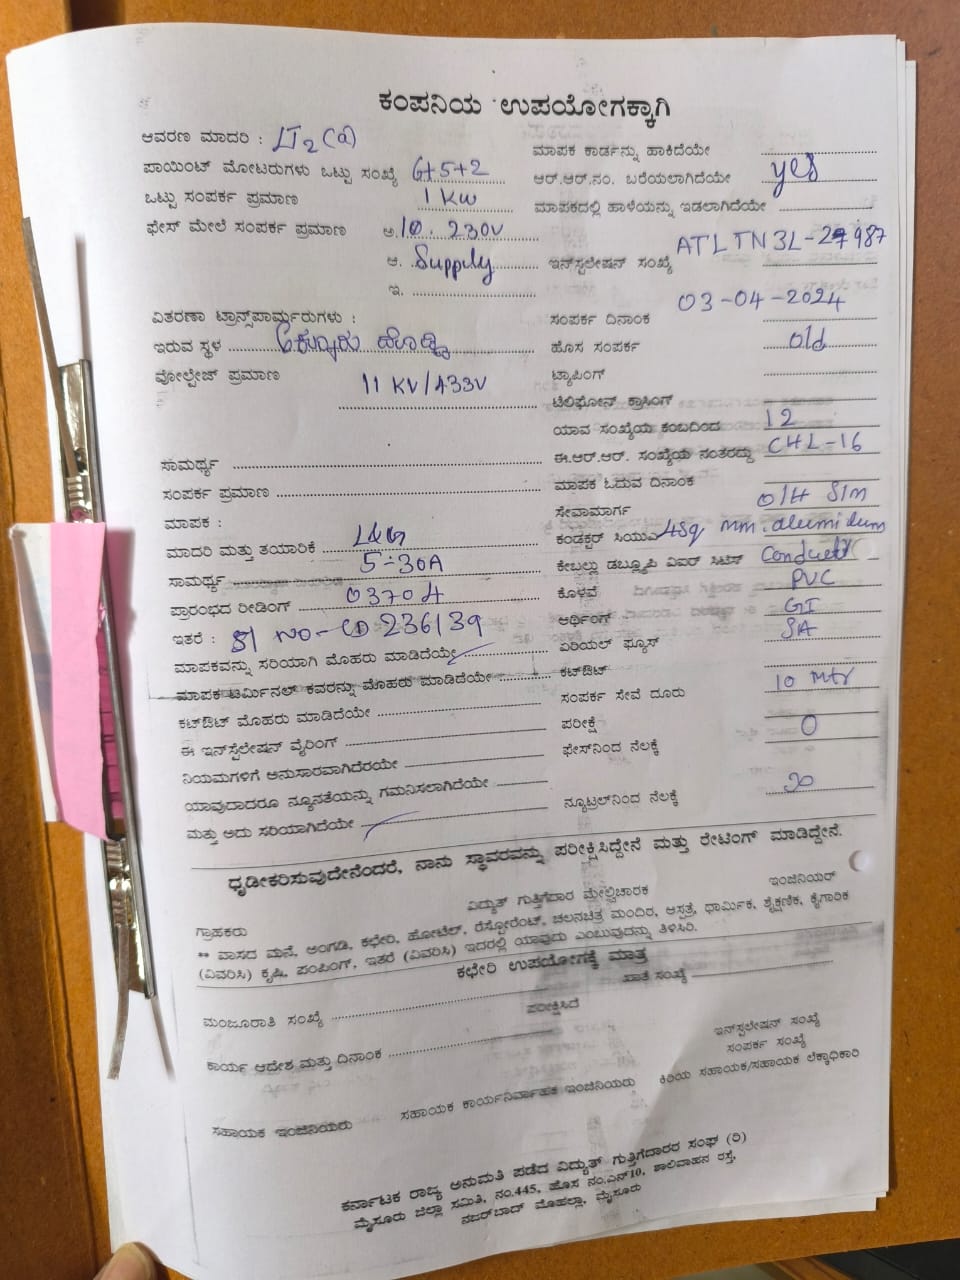 ಕಂಪನಿಯ ಉಪಯೋಗಕ್ಕಾಗಿ
ಆವರಣ ಮಾದರಿ : LT2(a)
ಮಾಪಕ ಕಾರ್ಡನ್ನು ಹಾಕಿದೆಯೇ
ಪಾಯಿಂಟ್ ಮೋಟರುಗಳು ಒಟ್ಟು ಸಂಖ್ಯೆ 6+5+2
ಆರ್.ಆರ್.ನಂ. ಬರೆಯಲಾಗಿದೆಯೇ yes
ಒಟ್ಟು ಸಂಪರ್ಕ ಪ್ರಮಾಣ 1 KW
ಮಾಪಕದಲ್ಲಿ ಹಾಳೆಯನ್ನು ಇಡಲಾಗಿದೆಯೇ
ಫೇಸ್ ಮೇಲೆ ಸಂಪರ್ಕ ಪ್ರಮಾಣ ಅ. 1Ø. 230V
ಆ. Supply
ಇನ್‌ಸ್ಟಲೇಷನ್ ಸಂಖ್ಯೆ ATLTN3L-27987
ಇ.
ವಿತರಣಾ ಟ್ರಾನ್ಸ್‌ಫಾರ್ಮರುಗಳು :
ಸಂಪರ್ಕ ದಿನಾಂಕ 03-04-2024
ಇರುವ ಸ್ಥಳ
ಹೊಸ ಸಂಪರ್ಕ old
ವೋಲ್ಟೇಜ್ ಪ್ರಮಾಣ 11 KV/433V
ಟ್ಯಾಪಿಂಗ್
ಟೆಲಿಫೋನ್ ಕ್ರಾಸಿಂಗ್
ಯಾವ ಸಂಖ್ಯೆಯ ಕಂಬದಿಂದ 12
ಸಾಮರ್ಥ್ಯ
ಈ.ಆರ್.ಆರ್. ಸಂಖ್ಯೆಯ ನಂತರದ್ದು CHL-16
ಸಂಪರ್ಕ ಪ್ರಮಾಣ
ಮಾಪಕ ಓದುವ ದಿನಾಂಕ
ಮಾಪಕ :
ಸೇವಾಮಾರ್ಗ O/H SIM
ಮಾದರಿ ಮತ್ತು ತಯಾರಿಕೆ L&G
ಕಂಡಕ್ಟರ್ ಸಿಯುಎ 4sq mm. alumidum
ಸಾಮರ್ಥ್ಯ 5-30A
ಕೇಬಲ್ಲು ಡಬ್ಲ್ಯೂಪಿ ವಿಎರ್ ಸಿಟಿಸ್
ಪ್ರಾರಂಭದ ರೀಡಿಂಗ್ 03704
ಕೊಳವೆ PVC
ಇತರೆ : Sl NO-CD236139
ಅರ್ಥಿಂಗ್ GI
ಮಾಪಕವನ್ನು ಸರಿಯಾಗಿ ಮೊಹರು ಮಾಡಿದೆಯೇ
ಏರಿಯಲ್ ಫ್ಯೂಸ್ 5A
ಮಾಪಕ ಟರ್ಮಿನಲ್ ಕವರನ್ನು ಮೊಹರು ಮಾಡಿದೆಯೇ
ಕಟ್‌ಔಟ್
ಕಟ್‌ಔಟ್ ಮೊಹರು ಮಾಡಿದೆಯೇ
ಸಂಪರ್ಕ ಸೇವೆ ದೂರು 10 mtr
ಈ ಇನ್‌ಸ್ಟಲೇಷನ್ ವೈರಿಂಗ್
ಪರೀಕ್ಷೆ
ನಿಯಮಗಳಿಗೆ ಅನುಸಾರವಾಗಿದೆರಯೇ
ಫೇಸ್‌ನಿಂದ ನೆಲಕ್ಕೆ 0
ಯಾವುದಾದರೂ ನ್ಯೂನತೆಯನ್ನು ಗಮನಿಸಲಾಗಿದೆಯೇ
ಮತ್ತು ಅದು ಸರಿಯಾಗಿದೆಯೇ
ನ್ಯೂಟ್ರಲ್‌ನಿಂದ ನೆಲಕ್ಕೆ
ಧೃಡೀಕರಿಸುವುದೇನೆಂದರೆ, ನಾನು ಸ್ಥಾವರವನ್ನು ಪರೀಕ್ಷಿಸಿದ್ದೇನೆ ಮತ್ತು ರೇಟಿಂಗ್ ಮಾಡಿದ್ದೇನೆ.
ಗ್ರಾಹಕರು
ವಿದ್ಯುತ್ ಗುತ್ತಿಗೆದಾರ ಮೇಲ್ವಿಚಾರಕ
ಇಂಜಿನಿಯರ್
** ವಾಸದ ಮನೆ, ಅಂಗಡಿ, ಕಛೇರಿ, ಹೋಟೆಲ್, ರೆಸ್ಟೋರೆಂಟ್, ಚಲನಚಿತ್ರ ಮಂದಿರ, ಆಸ್ಪತ್ರೆ, ಧಾರ್ಮಿಕ, ಶೈಕ್ಷಣಿಕ, ಕೈಗಾರಿಕ
(ವಿವರಿಸಿ) ಕೃಷಿ, ಪಂಪಿಂಗ್, ಇತರೆ (ವಿವರಿಸಿ) ಇದರಲ್ಲಿ ಯಾವುದು ಎಂಬುವುದನ್ನು ತಿಳಿಸಿರಿ.
ಕಛೇರಿ ಉಪಯೋಗಕ್ಕೆ ಮಾತ್ರ
ಮಂಜೂರಾತಿ ಸಂಖ್ಯೆ
ಖಾತೆ ಸಂಖ್ಯೆ
ಪರೀಕ್ಷಿಸಿದೆ
ಕಾರ್ಯ ಆದೇಶ ಮತ್ತು ದಿನಾಂಕ
ಇನ್‌ಸ್ಟಲೇಷನ್ ಸಂಖ್ಯೆ
ಸಂಪರ್ಕ ಸಂಖ್ಯೆ
ಸಹಾಯಕ ಇಂಜಿನಿಯರು
ಸಹಾಯಕ ಕಾರ್ಯನಿರ್ವಾಹಕ ಇಂಜಿನಿಯರು
ಕಿರಿಯ ಸಹಾಯಕ/ಸಹಾಯಕ ಲೆಕ್ಕಾಧಿಕಾರಿ
ಕರ್ನಾಟಕ ರಾಜ್ಯ ಅನುಮತಿ ಪಡೆದ ವಿದ್ಯುತ್ ಗುತ್ತಿಗೆದಾರರ ಸಂಘ (ರಿ)
ಮೈಸೂರು ಜಿಲ್ಲಾ ಸಮಿತಿ, ನಂ.445, ಹೊಸ ನಂ.ಎನ್10, ಶಾಲಿವಾಹನ ರಸ್ತೆ,
ನಜರ್‌ಬಾದ್ ಮೊಹಲ್ಲಾ, ಮೈಸೂರು